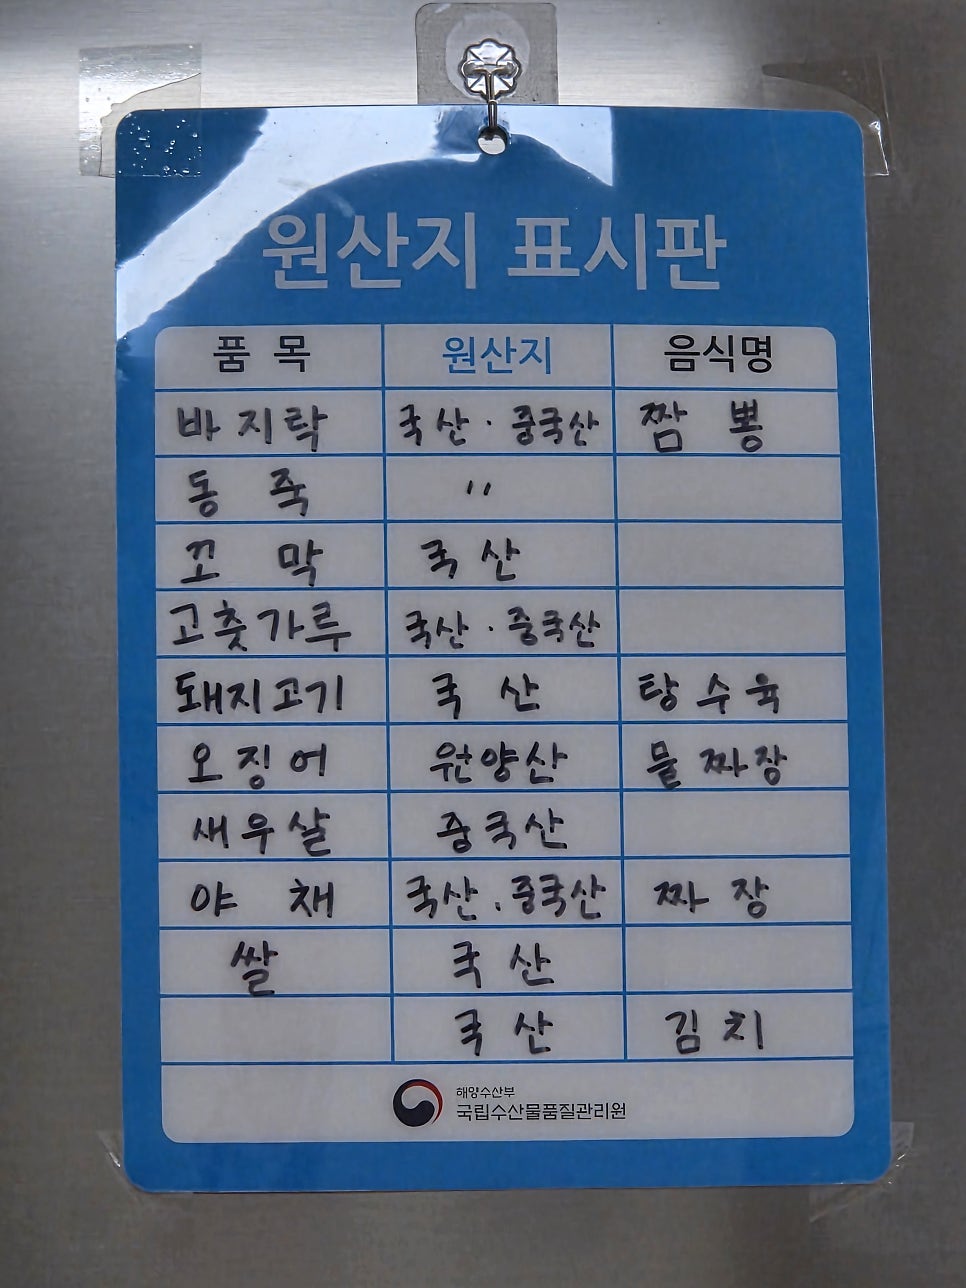 원산지 표시판
품 목 원산지 음식명
바지락 국산 · 중국산 짬 뽕
동 죽 〃
꼬 막 국 산
고춧가루 국산 · 중국산
돼지고기 국 산 탕수육
오징어 원양산 물짜장
새우살 중국산
야 채 국산 . 중국산 짜 장
쌀 국 산
국 산 김 치
해양수산부
국립수산물품질관리원